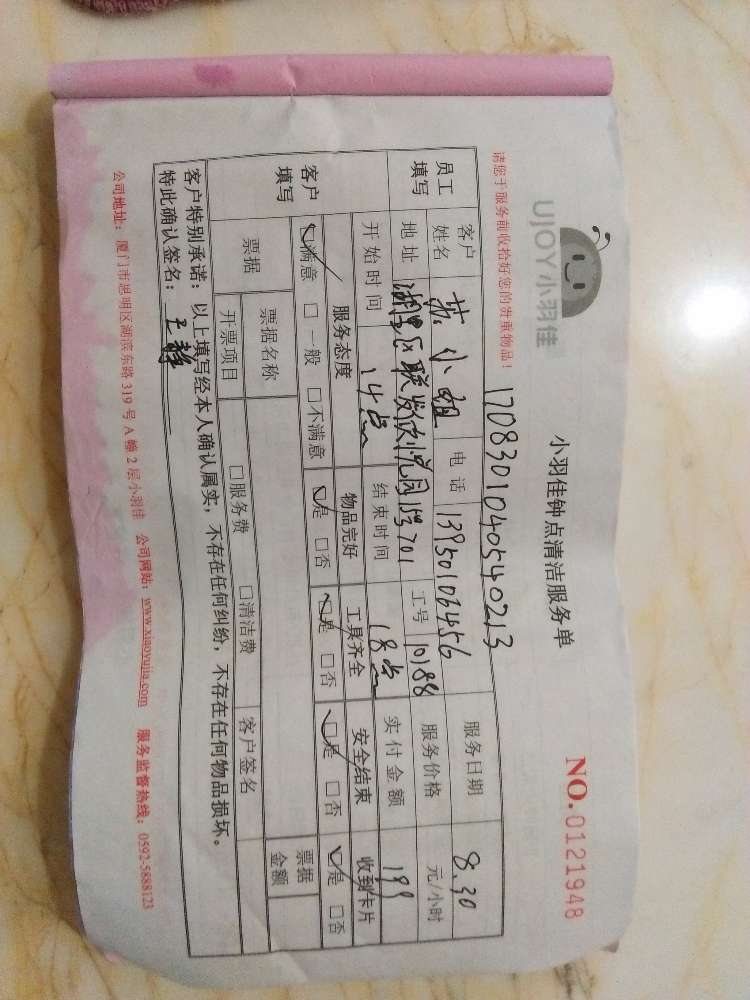 UJOY小羽佳
小羽佳钟点清洁服务单
NO.0121948
请您于服务前收拾好您的贵重物品!
17083010405402​13
员工填写 客户姓名 苏小姐 电话 13950106456 服务日期 8.30
地址 湖里区联发欣悦园 701 工号 10188 服务价格 元/小时
开始时间 14点 结束时间 18点 实付金额 199
客户填写 服务态度 物品完好 工具齐全 安全结束 收到卡片
☑满意 □一般 □不满意 ☑是 □否 ☑是 □否 ☑是 □否 ☑是 □否
票据 票据名称 票据金额
开票项目 □服务费 □清洁费 客户签名
客户特别承诺:以上填写经本人确认属实,不存在任何纠纷,不存在任何物品损坏。
特此确认签名:王静
公司地址:厦门市思明区湖滨东路319号A幢2层小羽佳 公司网站:www.xiaoyujia.com 服务监督热线:0592-5888123